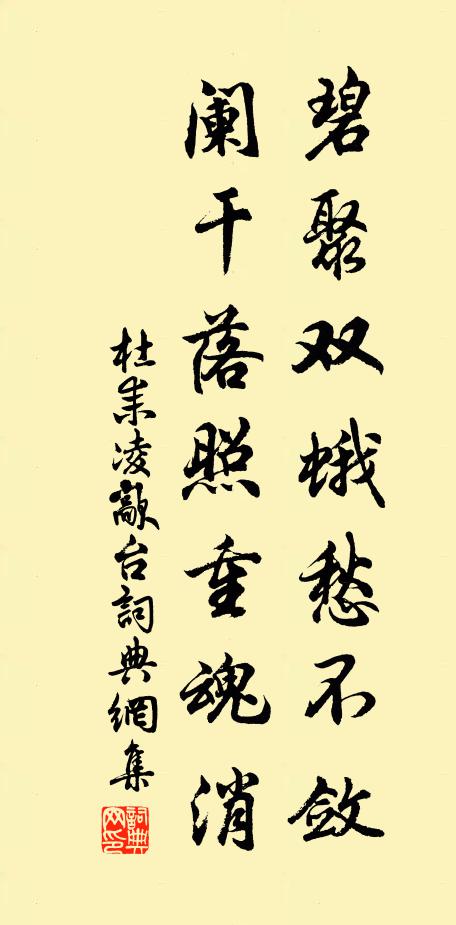 碧聚双蛾愁不敛
阑干落照重魂消
杜耒凌歊台詞典網集
詞典
网印